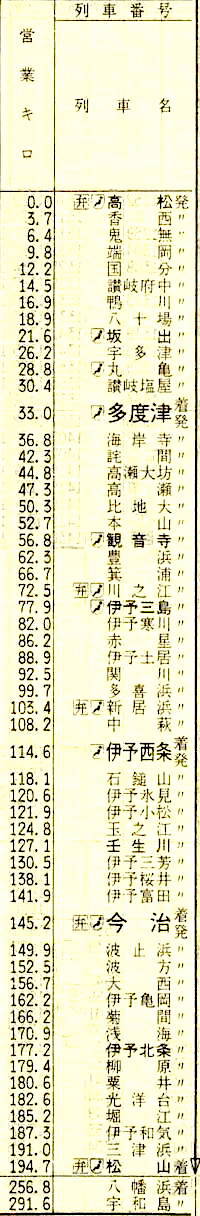 列車番号
営業キロ
列車名
0.0 弁 高松発
3.7 香西〃
6.4 鬼無〃
9.8 端岡〃
12.2 国分〃
14.5 讃岐府中〃
16.9 鴨川〃
18.9 八十場〃
21.6 坂出〃
26.2 宇多津〃
28.8 丸亀〃
30.4 讃岐塩屋〃
33.0 多度津着発
36.8 海岸寺〃
42.3 詫間〃
44.8 高瀬大坊〃
47.3 高瀬〃
50.3 比地大〃
52.7 本山〃
56.8 観音寺〃
62.3 豊浜〃
66.7 箕浦〃
72.5 弁 川之江〃
77.9 伊予三島〃
82.0 伊予寒川〃
86.2 赤星〃
88.9 伊予土居〃
92.5 関川〃
99.7 多喜浜〃
103.4 弁 新居浜〃
108.2 中萩〃
114.6 伊予西条着発
118.1 石鎚山〃
120.6 伊予氷見〃
121.9 伊予小松〃
124.8 玉之江〃
127.1 壬生川〃
130.5 伊予三芳〃
138.1 伊予桜井〃
141.9 伊予富田〃
145.2 弁 今治着発
149.9 波止浜〃
152.5 波方〃
156.7 大西〃
162.2 伊予亀岡〃
166.2 菊間〃
170.9 浅海〃
177.2 伊予北条〃
179.4 柳原〃
180.6 粟井〃
182.6 光洋台〃
185.2 堀江〃
187.3 伊予和気〃
191.0 三津浜〃
194.7 弁 松山着
256.8 八幡浜着
291.6 宇和島〃